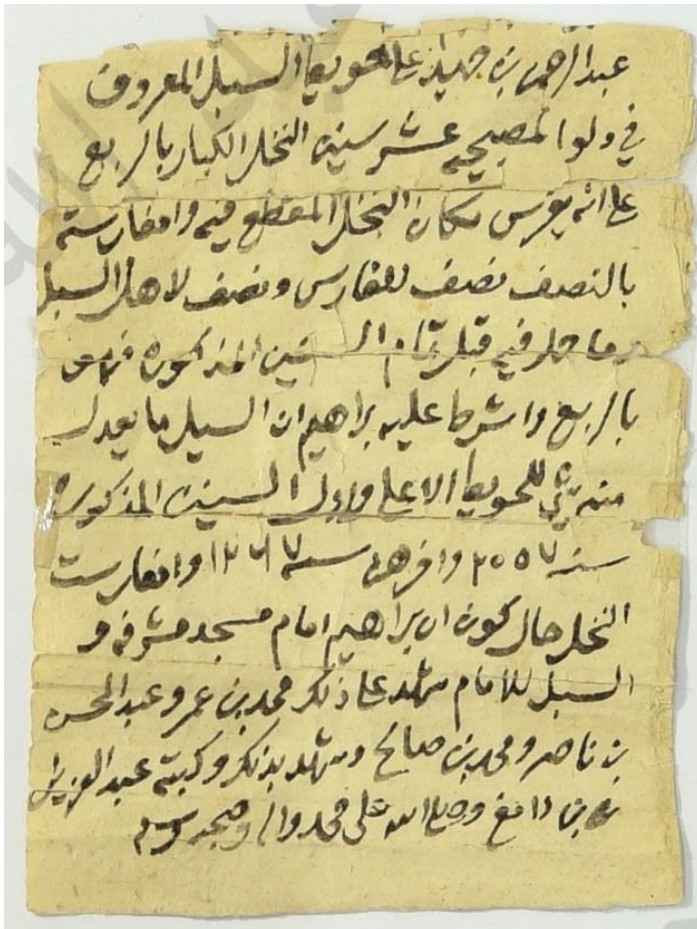 عبد الرحمن بن حميدان على حويط السبل المعروف
في ولوا لمصيحيه عشر سنين النخل الكبار بالربع
على انه يغرس مكان النخل المقطع فيه وامغارسته
بالنصف نصف للغارس ونصف لاهل السبل
وما حل فيه قبل تمام السنين المذكوره فهو
بالربع واشرط عليه براهيم ان السيل ما يعدل
منه شي للحويط الاعلى واول السنين المذكوره
سنه ٢٠٥٧ واخرهن سنه ١٢٦٧ وامغارست
النخل حال كون ابراهيم امام مسجد مشرفه و
السبل للامام شهد على ذلك محمد بن عمر وعبد المحسن
بن ناصر ومحمد بن صالح وشهد بذلك وكتبه عبد العزيز
بن دامغ وصلى الله على محمد واله وصحبه وسلم